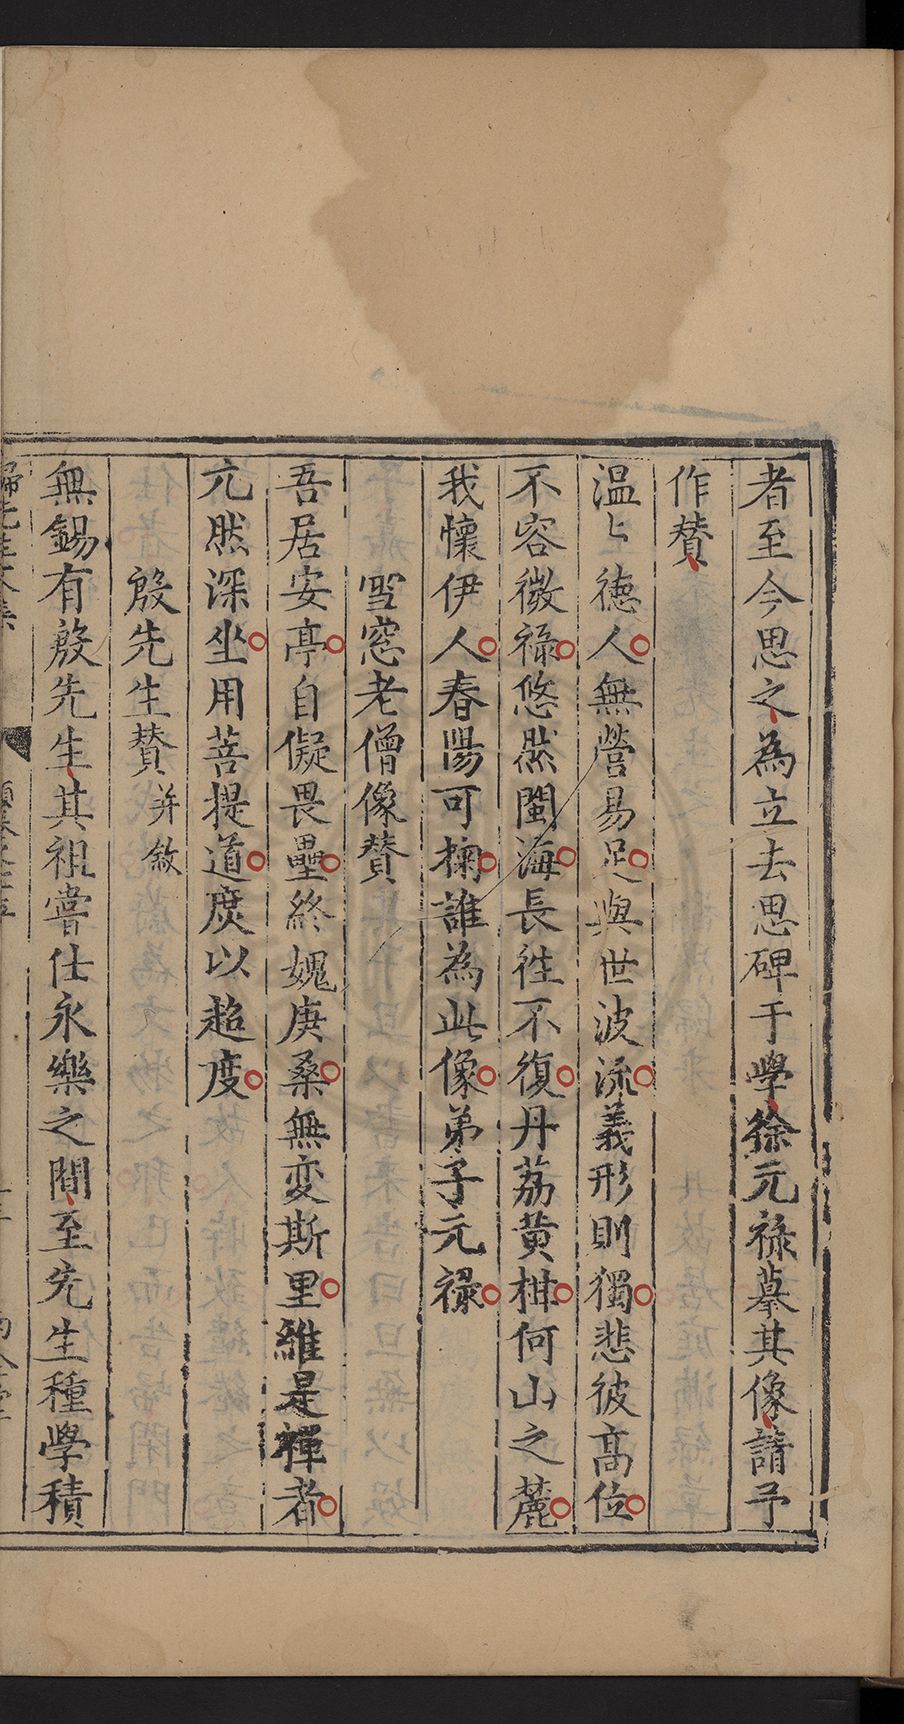 者至今思之為立去思碑于學徐元祿摹其像請予
作賛
温〻德人無營易足與世波流義形則獨悲彼高位
不容微祿悠然閩海長徃不復丹荔黄柑何山之麓
我懷伊人春陽可掬誰為此像弟子元祿
雪窓老僧像賛
吾居安亭自儗畏壘終媿庚桑無变斯里維是禪者
兀然深坐用菩提道庹以超度
殷先生賛 并敘
無錫有殷先生其祖嘗仕永樂之間至先生種學積
歸先生文集